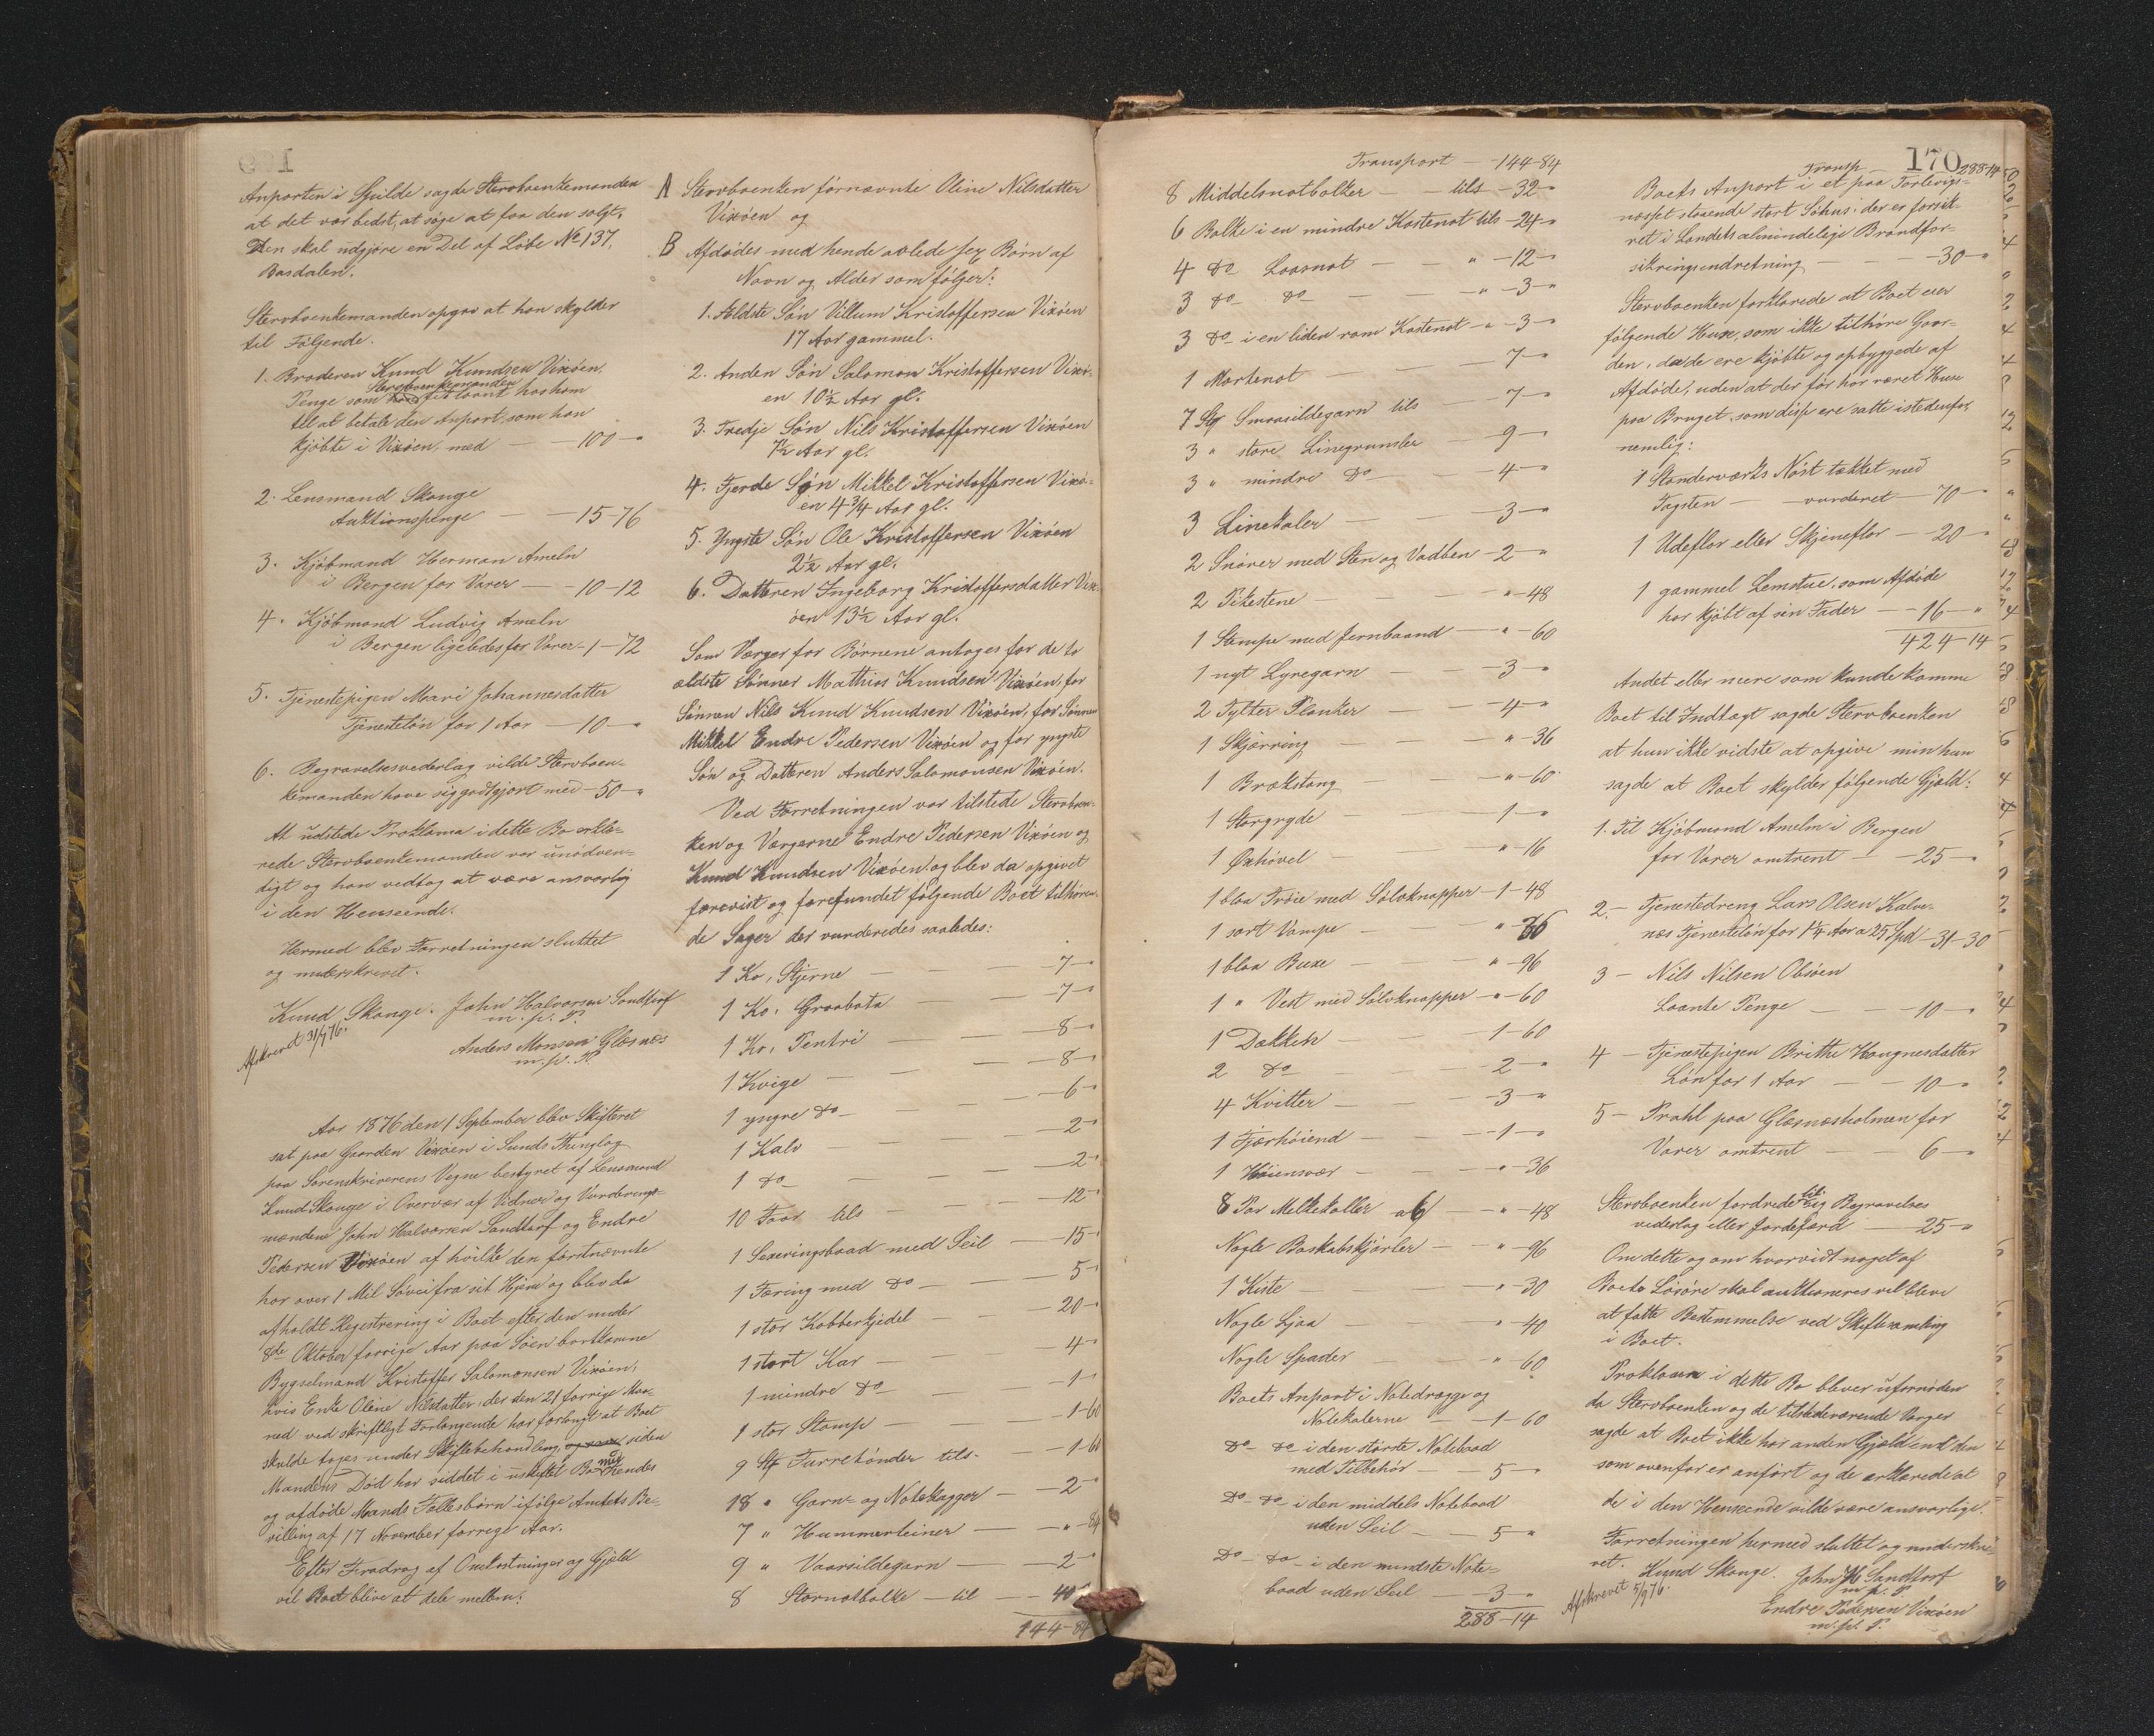 Anporten i Gjilde sagde Stervboenkemanden
at det var bedst, at søge at faa den solgt.
Den skal udgjøre en Del af Løbe No 137,
Basdalen.
Stervboenkemanden opgav at han skylder
til Følgende.
1. Broderen Knud Knudsen Vixøen,
Stervboenkemanden
Penge som har fét laant hos ham
til at betale den Anport, som han
kjøbte i Vixøen, med — 100 - "
2. Lensmand Skauge
Auktionspenge — — 15-76
3. Kjøbmand Herman Ameln
i Bergen for Varer — — 10-12
4. Kjøbmand Ludvig Ameln
i Bergen ligeledes for Varer - 1 - 72
5. Tjenestepigen Mari Johannesdatter
Tjenesteløn for 1 Aar — 10 - "
6. Begravelsesvederlag vilde Stervboen-
kemanden have sig godtgjort med - 50 - "
At udstede Proklama i dette Bo erklæ-
rede Stervboenkemanden var unødven-
digt og han vedtog at være ansvarlig
i den Henseende.
Hermed blev Forretningen sluttet
og underskrevet.
Knud Skauge. John Halvorsen Sandtorf
m. p. P.
Afskrevet 31/7 76.
Anders Monsen Glesnæs
m. p. P.
Aar 1876 den 1 September blev Skifteret
sat paa Gaarden Vixøen i Sunds Thinglag
paa Sorenskriverens Vegne bestyret af Lensmand
Knud Skauge i Overvær af Vidner og Vurderings-
mændene John Halvorsen Sandtorf og Endre
Pedersen Vixøen af hvilke den førstnævnte
har over 1 Mil Søvei fra sit Hjem og blev da
afholdt Registrering i Boet efter den under
8de Oktober forrige Aar paa Søen bortkomne
Bygselmand Kristoffer Salomonsen Vixøen,
hvis Enke Oline Nilsdatter, der den 21 forrige Maa-
ned ved skriftligt Forlangende har forlangt at Boet
skulde tages under Skiftebehandling, siden
Mandens Død har siddet i uskiftet Bo med hendes
og afdøde Mands Fællesbørn ifølge Amtets Be-
villing af 17 November forrige Aar.
Efter Fradrag af Omkostninger og Gjæld
vil Boet blive at dele mellem:
A Stervboenken førnævnte Oline Nilsdatter
Vixøen og
B Afdødes med hende avlede sex Børn af
Navn og Alder som følger:
1. Ældste Søn Villum Kristoffersen Vixøen
17 Aar gammel.
2. Anden Søn Salomon Kristoffersen Vixø-
en 10½ Aar gl.
3. Tredje Søn Nils Kristoffersen Vixøen
7½ Aar gl.
4. Fjerde Søn Mikkel Kristoffersen Vixø-
en 4 3/4 Aar gl.
5. Yngste Søn Ole Kristoffersen Vixøen
2½ Aar gl.
6. Datteren Ingeborg Kristoffersdatter Vix-
øen 13½ Aar gl.
Som Værger for Børnene antoges for de to
ældste Sønner Mathias Knudsen Vixøen, for
Sønnen Nils Knud Knudsen Vixøen, for Sønnen
Mikkel Endre Pedersen Vixøen og for yngste
Søn og Datteren Anders Salomonsen Vixøen.
Ved Forretningen var tilstede Stervboen-
ken og Værgerne Endre Pedersen Vixøen og
Knud Knudsen Vixøen og blev da opgivet
forevist og forefundet følgende Boet tilhøren-
de Sager der vurderedes saaledes:
1 Ko, Stjerne — — — 7 - "
1 Ko, Graabota — — — 7 - "
1 Ko, Pentri — — — 8 - "
1 Kvige — — — 8 - "
1 yngre do — — — 6 - "
1 Kalv — — — 2 - "
1 do — — — 2 - "
10 Faar tils — — — 12 - "
1 Sexeringsbaad med Seil — 15 - "
1 Færing med do — — 5 - "
1 stor Kobberkjedel — — 20 - "
1 stort Kar — — — 4 - "
1 mindre do — — — 1 - "
1 stor Stamp — — — 1-60
9 Stk Turretønder tils. — — 1-60
18 " Garn- og Notekagger — 2 - "
7 " Hummerteiner — — " - 84
9 " Vaarsildegarn — — 2 - "
8 Stornotbolke — til — 40 - "
144-84
Transport — 144-84
8 Middelsnotbolker — — tils - 32 - "
6 Bolke i en mindre Kastenot tils - 24 - "
4 do Laasnot — — " - 12 - "
3 do do — — " - 3 - "
3 do i en liden ram Kastenot - " - 3 - "
1 Mortenot — — 7 - "
7 Stk Smaasildegarn tils — 7 - "
3 " store Linegrunsler — 9 - "
3 " mindre do — — 4 - "
3 Linekaler — — 3 - "
2 Snører med Sten og Vadben - 2 - "
2 Pikestene — — " - 48
1 Stampe med Jernbaand — " - 60
1 nyt Lyregarn — — 3 - "
2 Tylter Planker — — 4 - "
1 Skjærring — — " - 36
1 Brækstang — — " - 60
1 Storgryde — — 1 - "
1 Øxhøvel — — " - 16
1 blaa Trøie med Sølvknapper - 1 - 48
1 sort Vampe — — " - 36
1 blaa Buxe — — " - 96
1 " Vest med Sølvknapper - " - 60
1 Dækken — — 1-60
2 do — — 2 - "
4 Kvitter — — 3 - "
1 Fjærhøiend — — 1 - "
1 Høiensvær — — " - 36
8 Par Melkekoller a 6 — " - 48
Nogle Boskabskjørler — " - 96
1 Kiste — — " - 30
Nogle Ljaa — — " - 40
Nogle Spader — — " - 60
Boets Anport i Notedrægge og
Notekalerne — — 1-60
do - do i den største Notebaad
med Tilbehør — — 5 - "
do - do i den middels Notebaad
uden Seil — — 5 "
do - do i den mindste Note-
baad uden Seil — 3 - "
288-14
170
Transp — 288-14
Boets Anport i et paa Torlevigs-
næsset staaende stort Søhus, der er forsik-
ret i Landets almindelige Brandfor-
sikringsindretning — — — 30 - "
Stervboenken forklarede at Boet eier
følgende Huse, som ikke tilhøre Gaar-
den, da de ere kjøbte og opbyggede af
Afdøde, uden at der før har været Huse
paa Bruget, som disse ere satte istedenfor,
nemlig:
1 Standerværks Nøst tækket med
Tagsten — — vurderet — 70 - "
1 Udeflor eller Skjeneflor — 20 - "
1 gammel Lemstue, som Afdøde
har kjøbt af sin Fader — 16 - "
424-14
Andet eller mere som kunde komme
Boet til Indtægt sagde Stervboenken
at hun ikke vidste at opgive min hun
sagde at Boet skylder følgende Gjæld:
1. Til Kjøbmand Ameln i Bergen
for Varer omtrent — — 25 - "
2. — Tjenestedreng Lars Olsen Kalve-
næs Tjenesteløn for 1¼ Aar a 25 Spd - 31 - 30
3 — Nils Nilsen Obsøen
Laante Penge — — 10 - "
4 — Tjenestepigen Brithe Haugnesdatter
Løn for 1 Aar — — 10 - "
5 — Prahl paa Glæsnæsholmen for
Varer omtrent — — 6 - "
Stervboenken fordrede til sig Begravelses
vederlag eller Jordefærd — 25 - "
Om dette og om hvorvidt noget af
Boets Løsøre skal auktioneres vil blive
at fatte Bestemmelse ved Skiftesamling
i Boet.
Proklama i dette Bo bliver ufornøden
da Stervboenken og de tilstedeværende Værger
sagde at Boet ikke har anden Gjæld end den
som ovenfor er anført og de erklærede at
de i den Henseende vilde være ansvarlige.
Forretningen hermed sluttet og underskre-
vet. Knud Skauge. John H Sandtorf
m. p. P.
Afskrevet 5/9 76.
Endre Pedersen Vixøen
m. p. P.